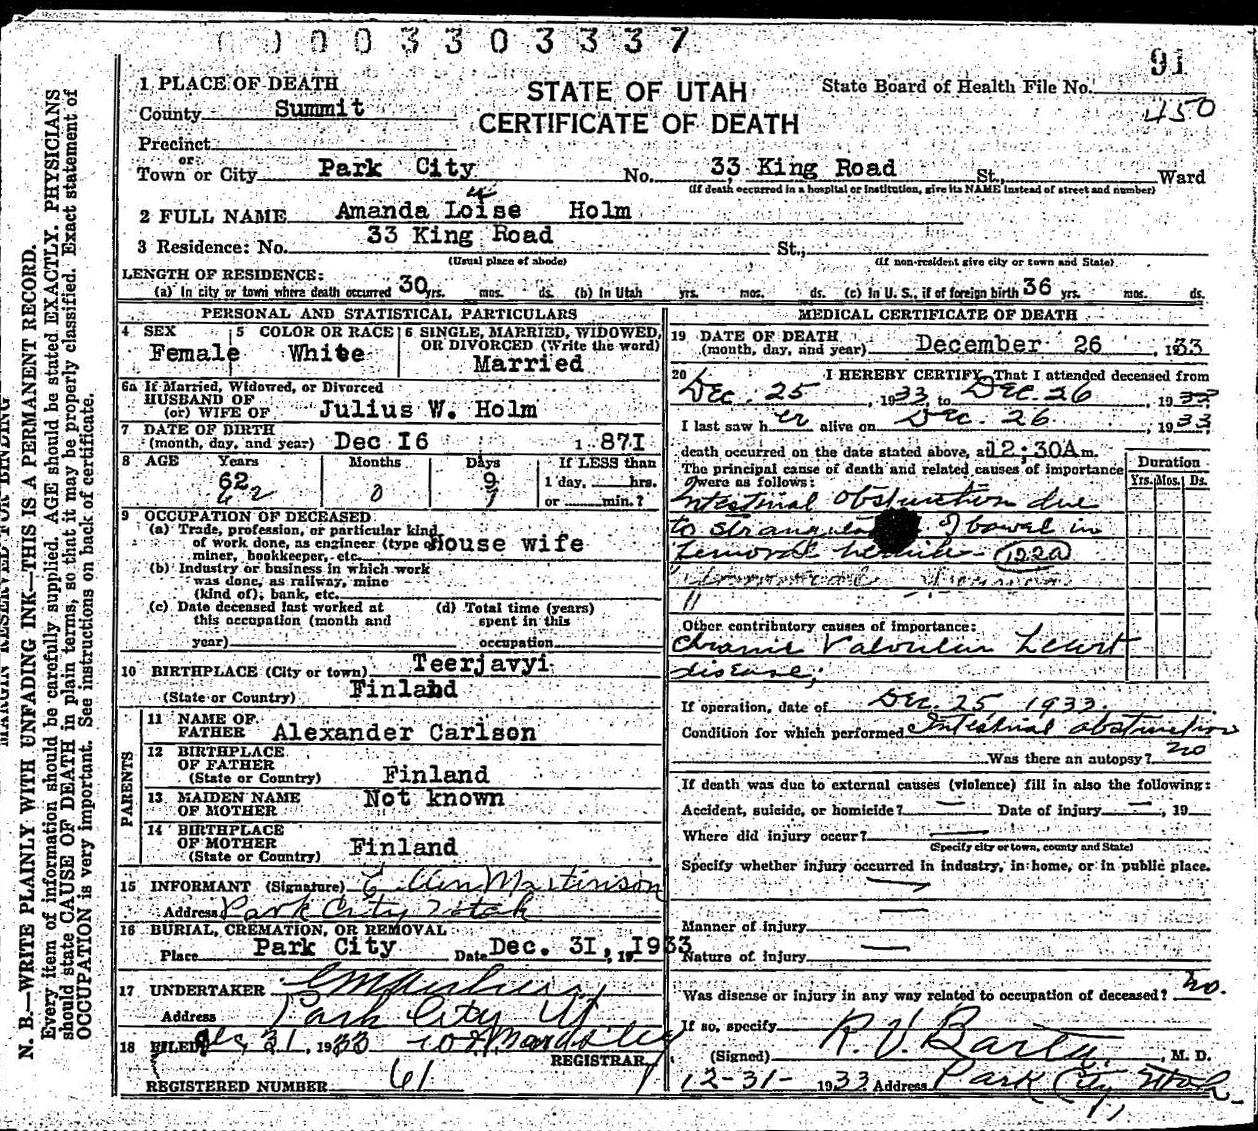 00003303337
91
1 PLACE OF DEATH
STATE OF UTAH
State Board of Health File No.
450
County Summit
CERTIFICATE OF DEATH
Precinct
or
Town or City Park City No. 33 King Road St., Ward
(If death occurred in a hospital or institution, give its NAME instead of street and number)
u
2 FULL NAME Amanda Loise Holm
3 Residence: No. 33 King Road St.,
(Usual place of abode) (If non-resident give city or town and State)
LENGTH OF RESIDENCE:
(a) In city or town where death occurred 30 yrs. mos. ds. (b) In Utah yrs. mos. ds. (c) in U. S., if of foreign birth 36 yrs. mos. ds.
PERSONAL AND STATISTICAL PARTICULARS
4 SEX Female
5 COLOR OR RACE White
6 SINGLE, MARRIED, WIDOWED, OR DIVORCED (Write the word)
Married
6a If Married, Widowed, or Divorced
HUSBAND OF
(or) WIFE OF Julius W. Holm
7 DATE OF BIRTH
(month, day, and year) Dec I6 1 87I
8 AGE Years Months Days If LESS than
62 9 1 day, hrs.
62 0 9 or min.?
9 OCCUPATION OF DECEASED
(a) Trade, profession, or particular kind
of work done, as engineer (type of House wife
miner, bookkeeper, etc.
(b) Industry or business in which work
was done, as railway, mine
(kind of); bank, etc.
(c) Date deceased last worked at (d) Total time (years)
this occupation (month and spent in this
year) occupation
10 BIRTHPLACE (City or town) Teerjavyi
(State or Country) Finland
PARENTS
11 NAME OF
FATHER Alexander Carlson
12 BIRTHPLACE
OF FATHER
(State or Country) Finland
13 MAIDEN NAME Not known
OF MOTHER
14 BIRTHPLACE
OF MOTHER Finland
(State or Country)
15 INFORMANT (Signature) Ellen Martinson
Address Park City Utah
16 BURIAL, CREMATION, OR REMOVAL
Place Park City Date Dec. 3I, I933
17 UNDERTAKER
Address Park City Ut
18 FILED Dec 31, 1933
REGISTRAR
REGISTERED NUMBER 61
MEDICAL CERTIFICATE OF DEATH
19 DATE OF DEATH
(month, day, and year) December 26, 1933
20 I HEREBY CERTIFY, That I attended deceased from
Dec. 25, 1933, to Dec. 26, 1933
I last saw her alive on Dec. 26, 1933
death occurred on the date stated above, at 12;30A m.
The principal cause of death and related causes of importance
were as follows:
Duration
Yrs. Mos. Ds.
Intestinal obstruction due
to of bowel in
femoral hernia (122a)
"
Other contributory causes of importance:
Chronic Valvular heart
disease;
If operation, date of Dec. 25 1933.
Condition for which performed Intestinal obstruction
Was there an autopsy? no
If death was due to external causes (violence) fill in also the following:
Accident, suicide, or homicide? — Date of injury —, 19
Where did injury occur? —
(Specify city or town, county and State)
Specify whether injury occurred in industry, in home, or in public place.
—
Manner of injury —
Nature of injury —
Was disease or injury in any way related to occupation of deceased? no.
If so, specify
(Signed) R. V. Barta, M. D.
12-31- 1933 Address Park City, Utah
MARGIN RESERVED FOR BINDING
N. B.—WRITE PLAINLY WITH UNFADING INK—THIS IS A PERMANENT RECORD.
Every item of information should be carefully supplied. AGE should be stated EXACTLY. PHYSICIANS
should state CAUSE OF DEATH in plain terms, so that it may be properly classified. Exact statement of
OCCUPATION is very important. See instructions on back of certificate.